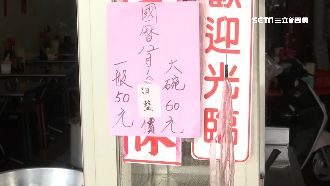 SETN 三立新聞網
歡迎光臨
國曆八月
調整價
大碗60元
一般50元